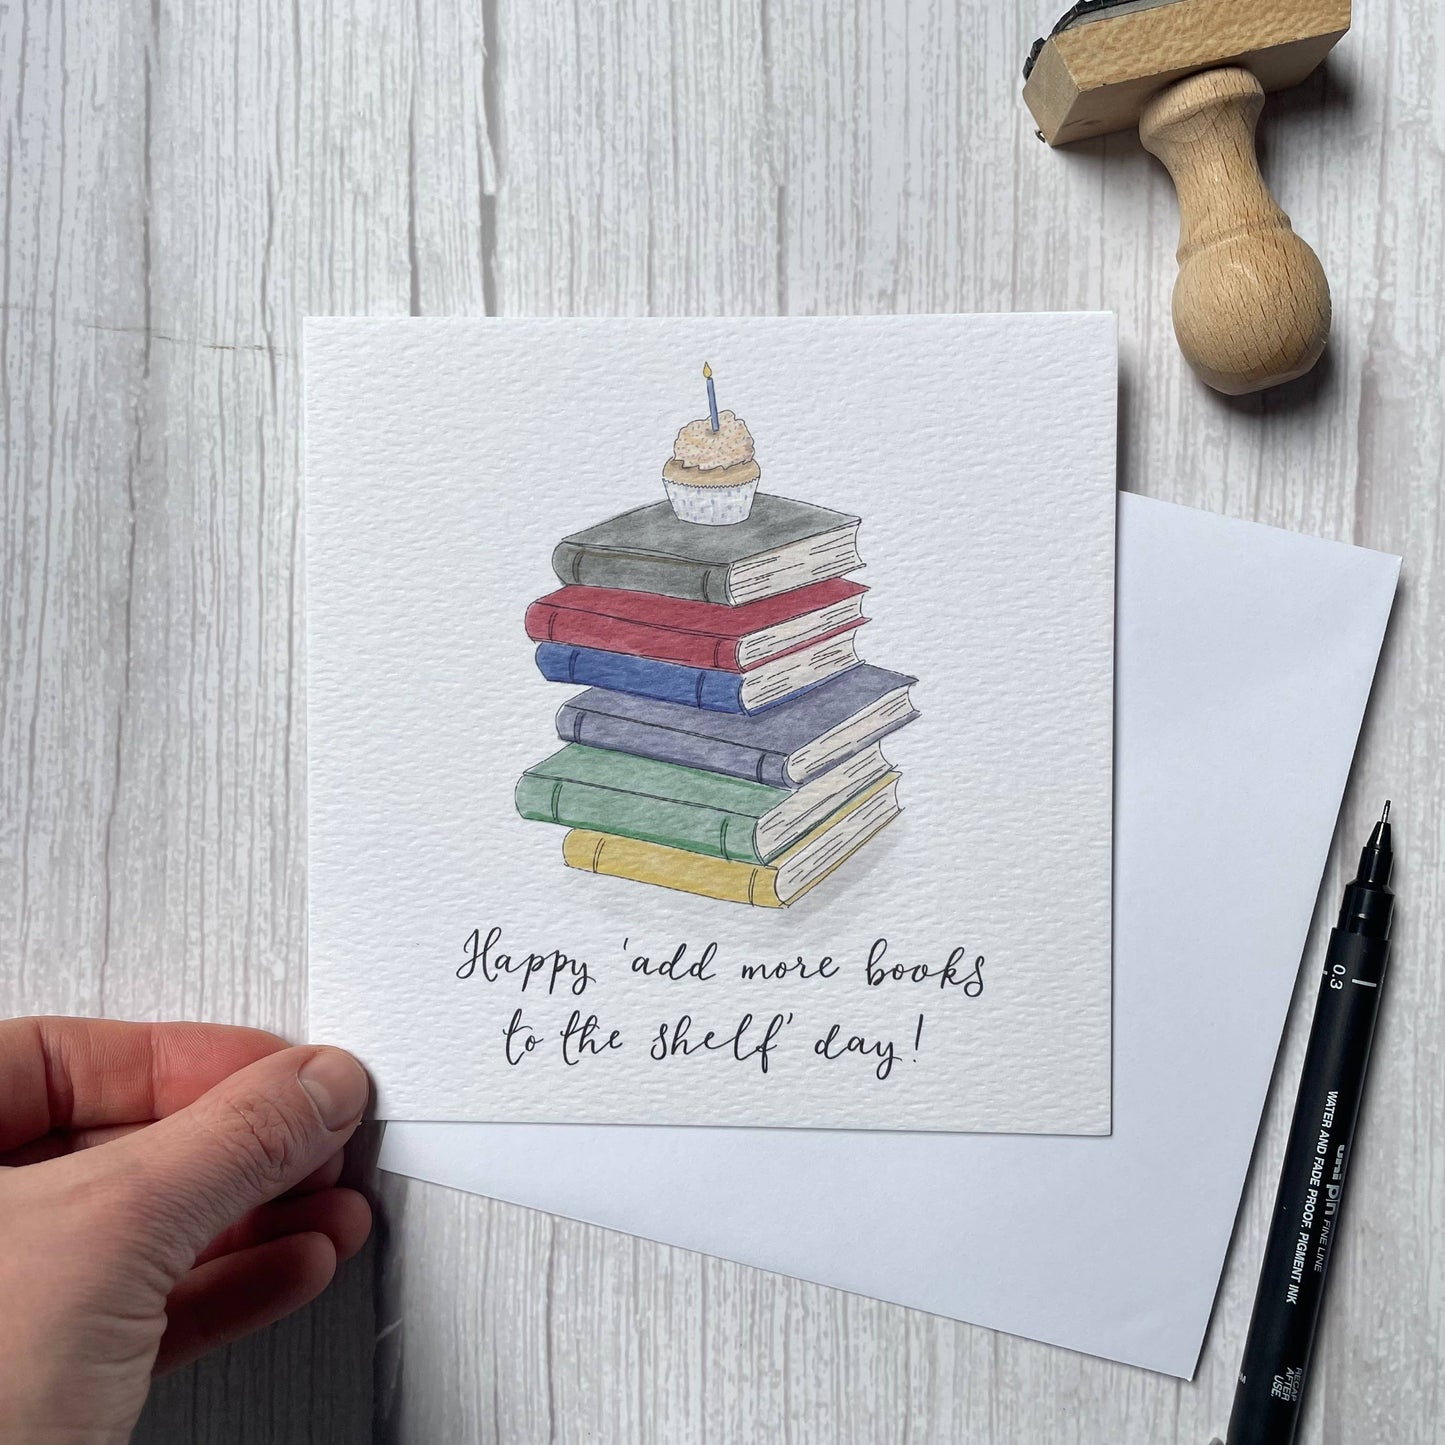 Happy 'add more books
to the shelf' day!
0.3
uni pin FINE LINE
WATER AND FADE PROOF, PIGMENT INK
RECAP
AFTER
USE.